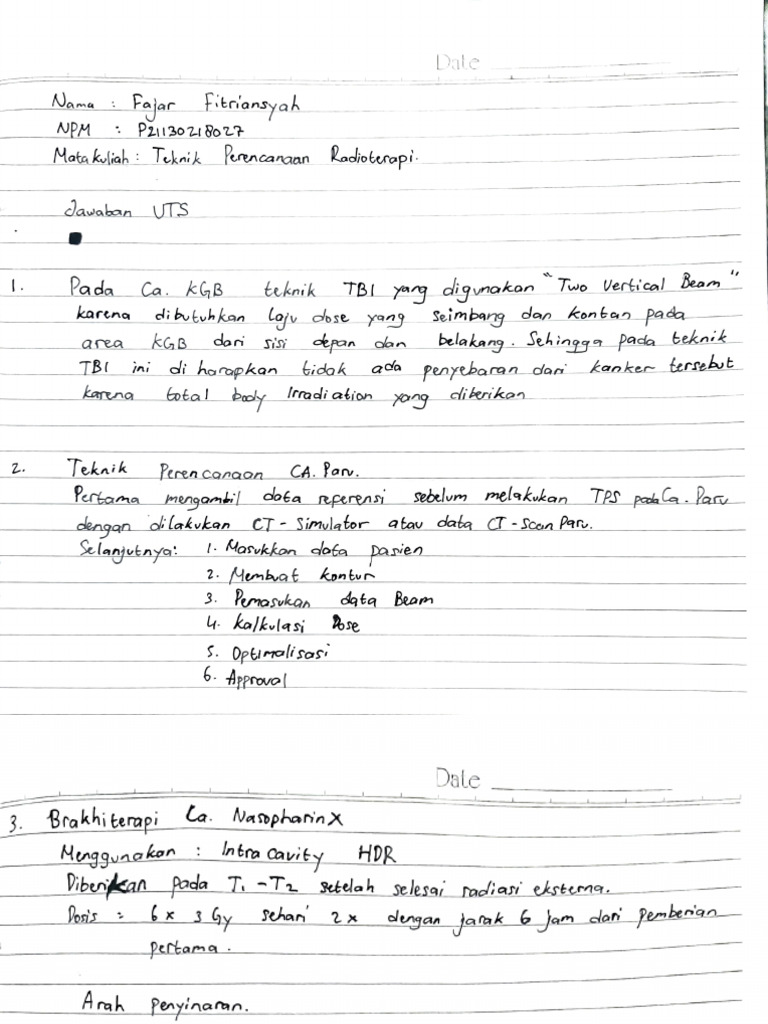 Date
Nama : Fajar Fitriansyah
NPM : P21130218027
Mata kuliah : Teknik Perencanaan Radioterapi.
Jawaban UTS
1. Pada Ca. KGB teknik TBI yang digunakan "Two Vertical Beam"
karena dibutuhkan laju dose yang seimbang dan kontan pada
area KGB dari sisi depan dan belakang. Sehingga pada teknik
TBI ini di harapkan tidak ada penyebaran dari kanker tersebut
karena total body Irradiation yang diberikan
2. Teknik Perencanaan CA. Paru.
Pertama mengambil data referensi sebelum melakukan TPS pada Ca. Paru
dengan dilakukan CT-Simulator atau data CT-Scan Paru.
Selanjutnya: 1. Masukkan data pasien
2. Membuat kontur
3. Pemasukan data Beam
4. Kalkulasi Dose
5. Optimalisasi
6. Approval
Date
3. Brakhiterapi Ca. NasopharinX
Menggunakan : Intra cavity HDR
Diberikan pada T1-T2 setelah selesai radiasi eksterna.
Dosis = 6 x 3 Gy sehari 2x dengan jarak 6 jam dari pemberian
pertama.
Arah penyinaran.